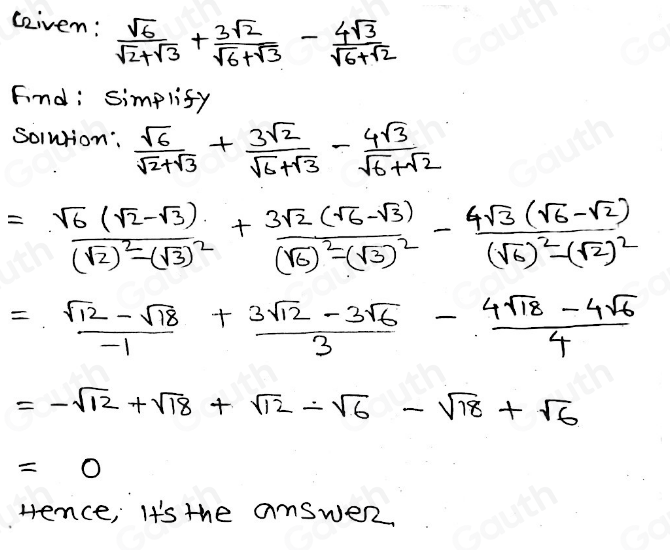 Given: √6/(√2+√3) + 3√2/(√6+√3) − 4√3/(√6+√2)
Find: Simplify
Solution: √6/(√2+√3) + 3√2/(√6+√3) − 4√3/(√6+√2)
= √6(√2−√3)/((√2)²−(√3)²) + 3√2(√6−√3)/((√6)²−(√3)²) − 4√3(√6−√2)/((√6)²−(√2)²)
= (√12−√18)/−1 + (3√12−3√6)/3 − (4√18−4√6)/4
= −√12+√18+√12−√6−√18+√6
= 0
Hence, it's the answer.
Gauth